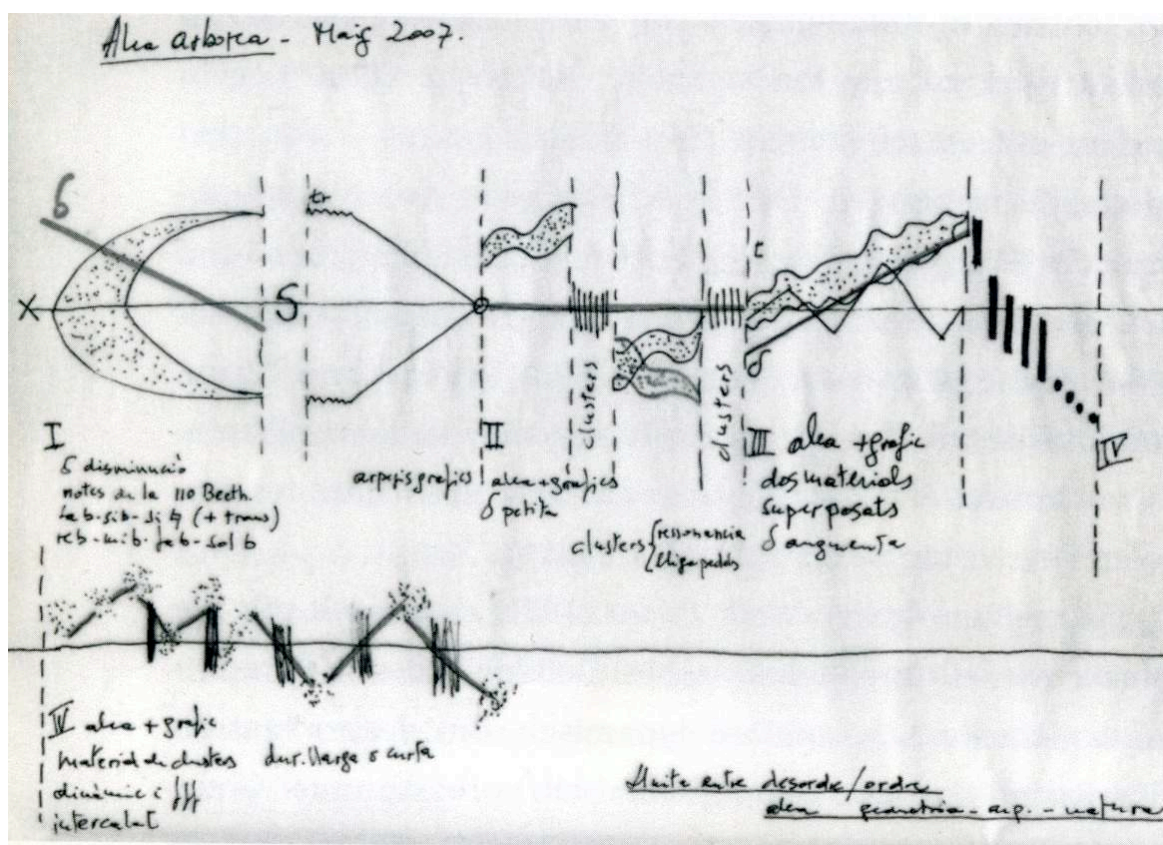 Alea arborea - Maig 2007.
δ
X
S
tr
clusters
clusters
δ
I
δ disminució
notes de la 110 Beeth.
lab-sib-si ♮ (+ trans)
reb-mib-fab-solb
arpegis grafics
II
alea + grafics
δ petita
clusters { ressonancia
lliga pedals
III alea + grafic
dos materials
superposats
δ augmenta
IV
IV alea + grafic
material de clusters dur. llarga o curta
dinàmic i fff
intercalat
límite entre desordre/ordre
alea geometria - arp. - natura